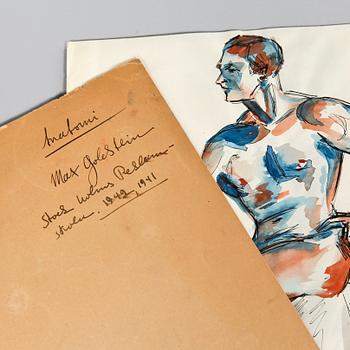 Anatomi
Max Goldstein
Stockholms Reklam-
skola. 1940, 1941